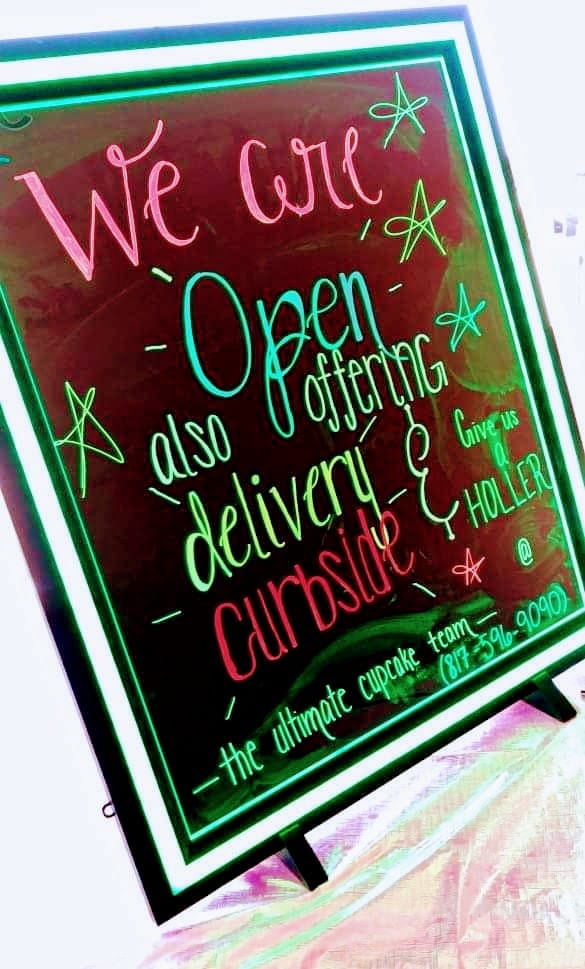 We are
Open
also offering
delivery &
curbside
Give us
a
HOLLER
@
(817-596-9090)
—the ultimate cupcake team—